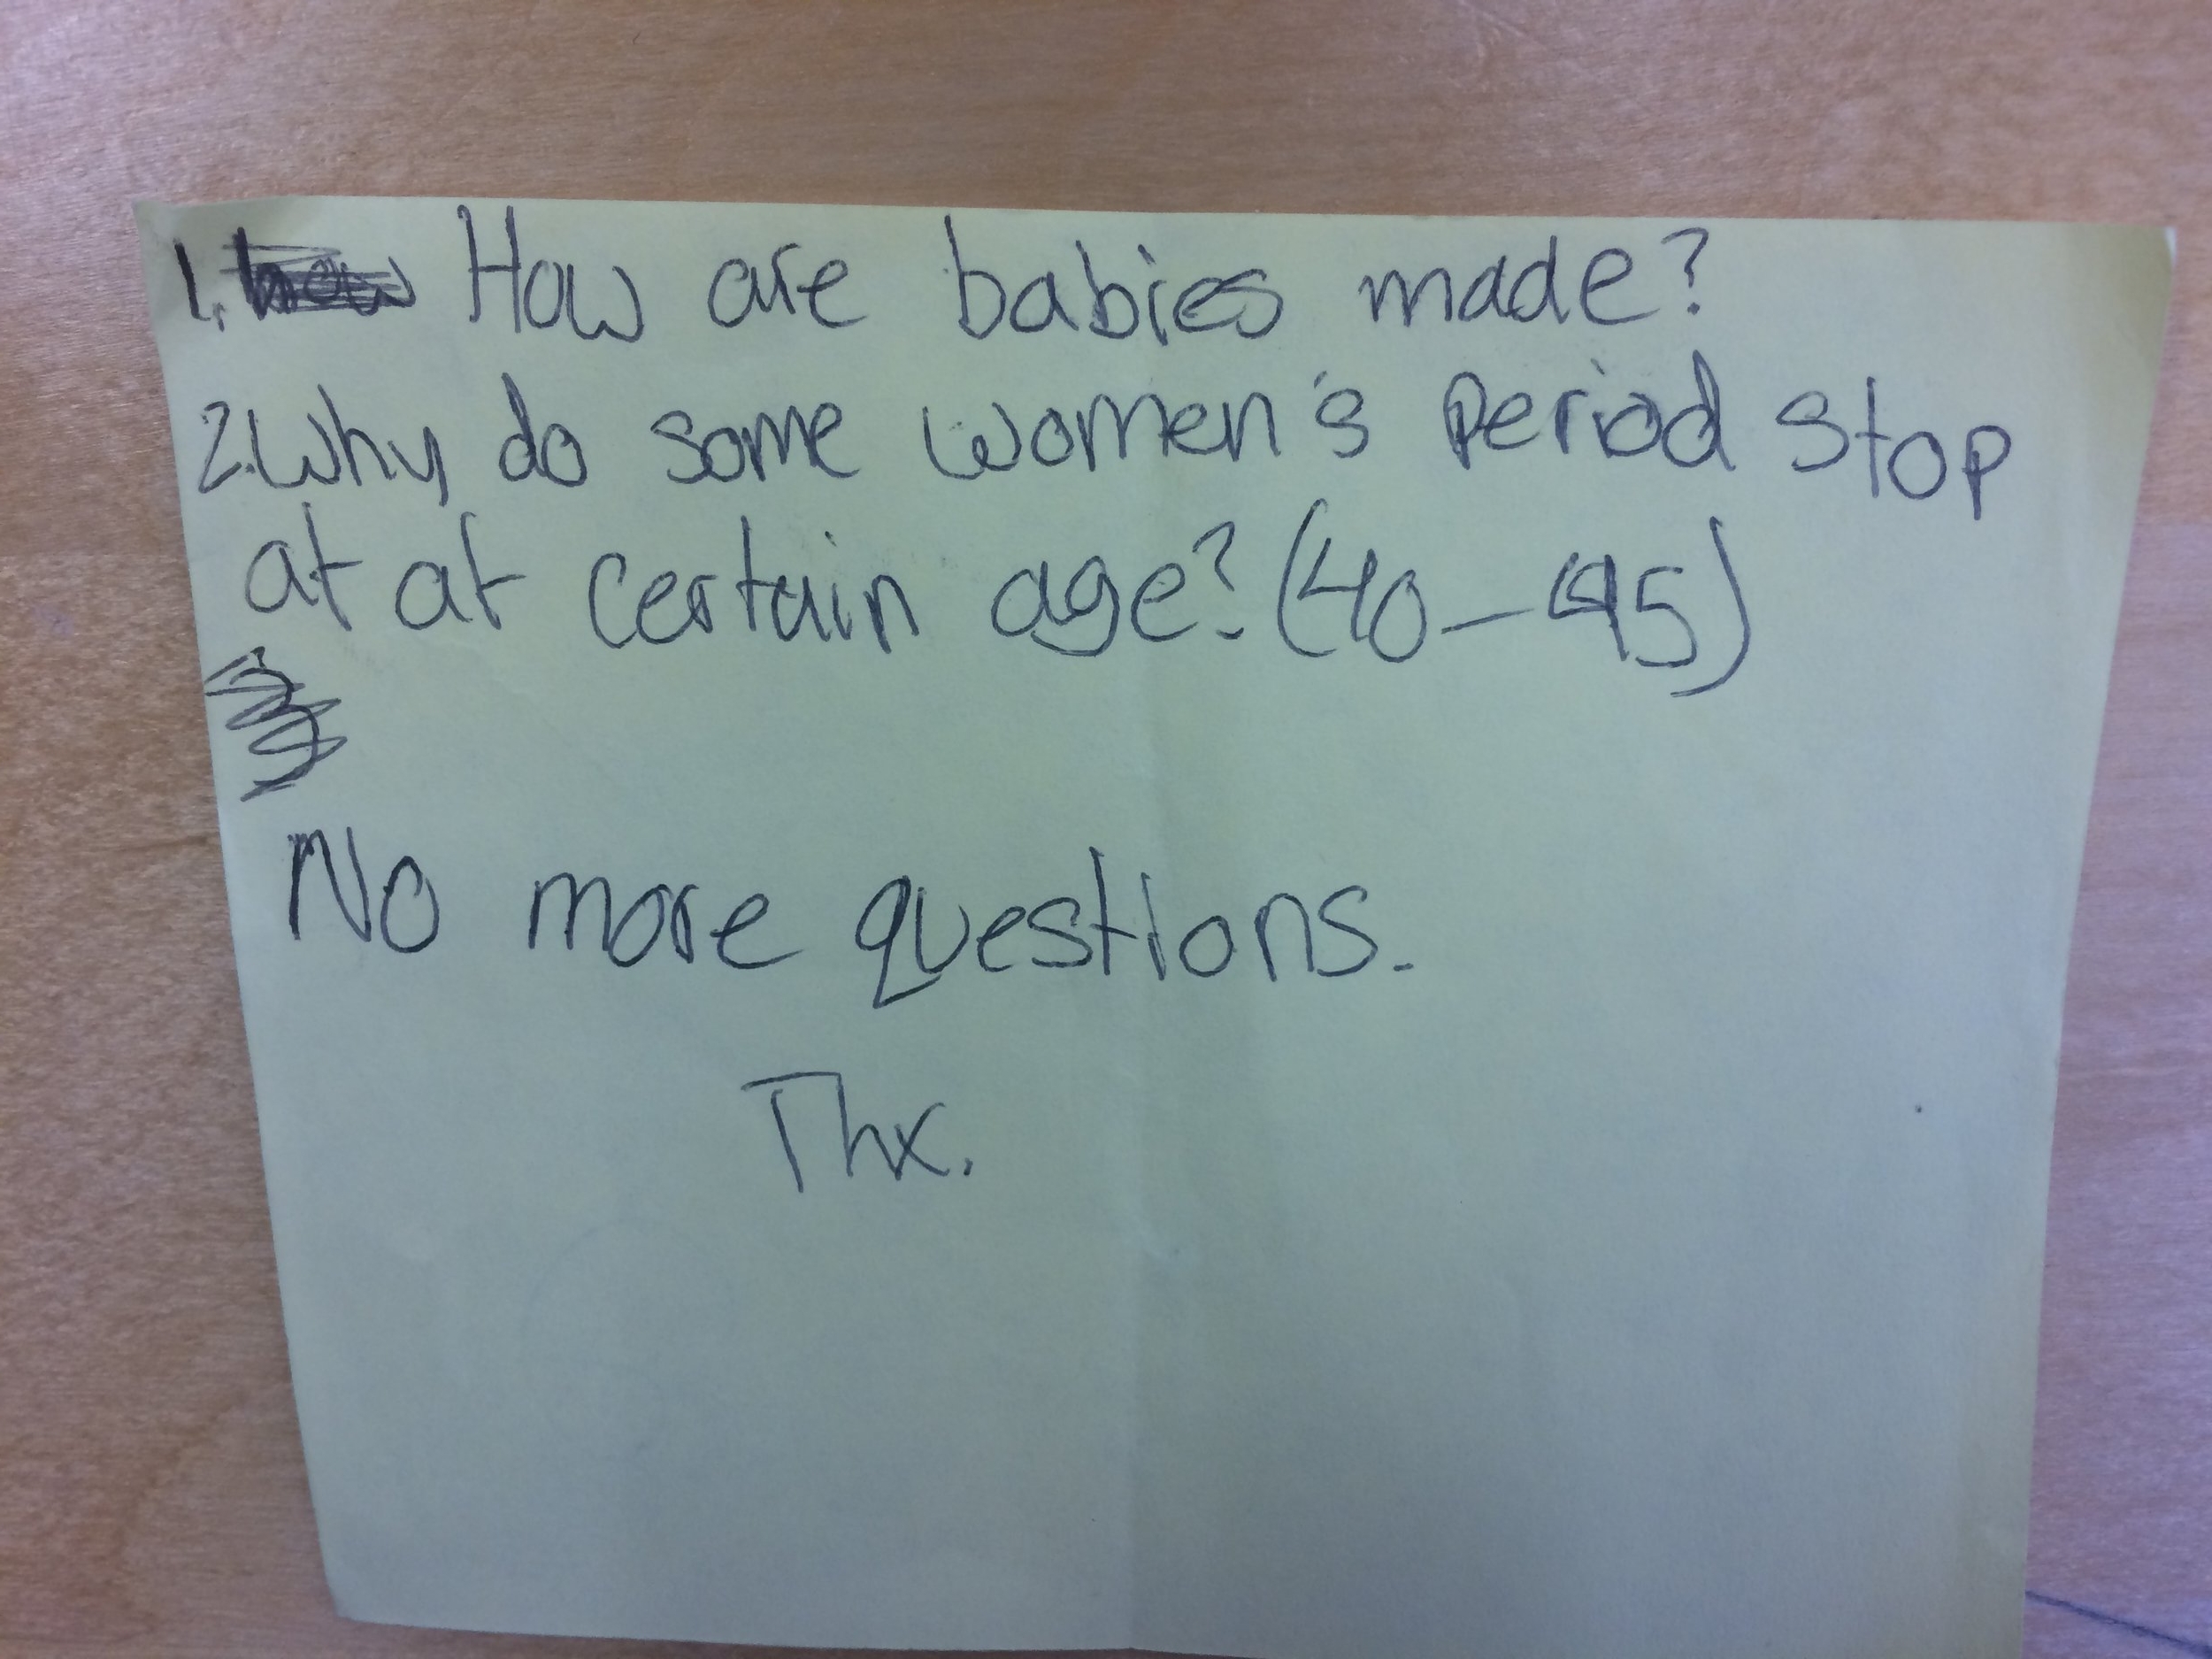 1. how How are babies made?
2. Why do some women's period stop
at at certain age? (40-45)
3
No more questions.
Thx.